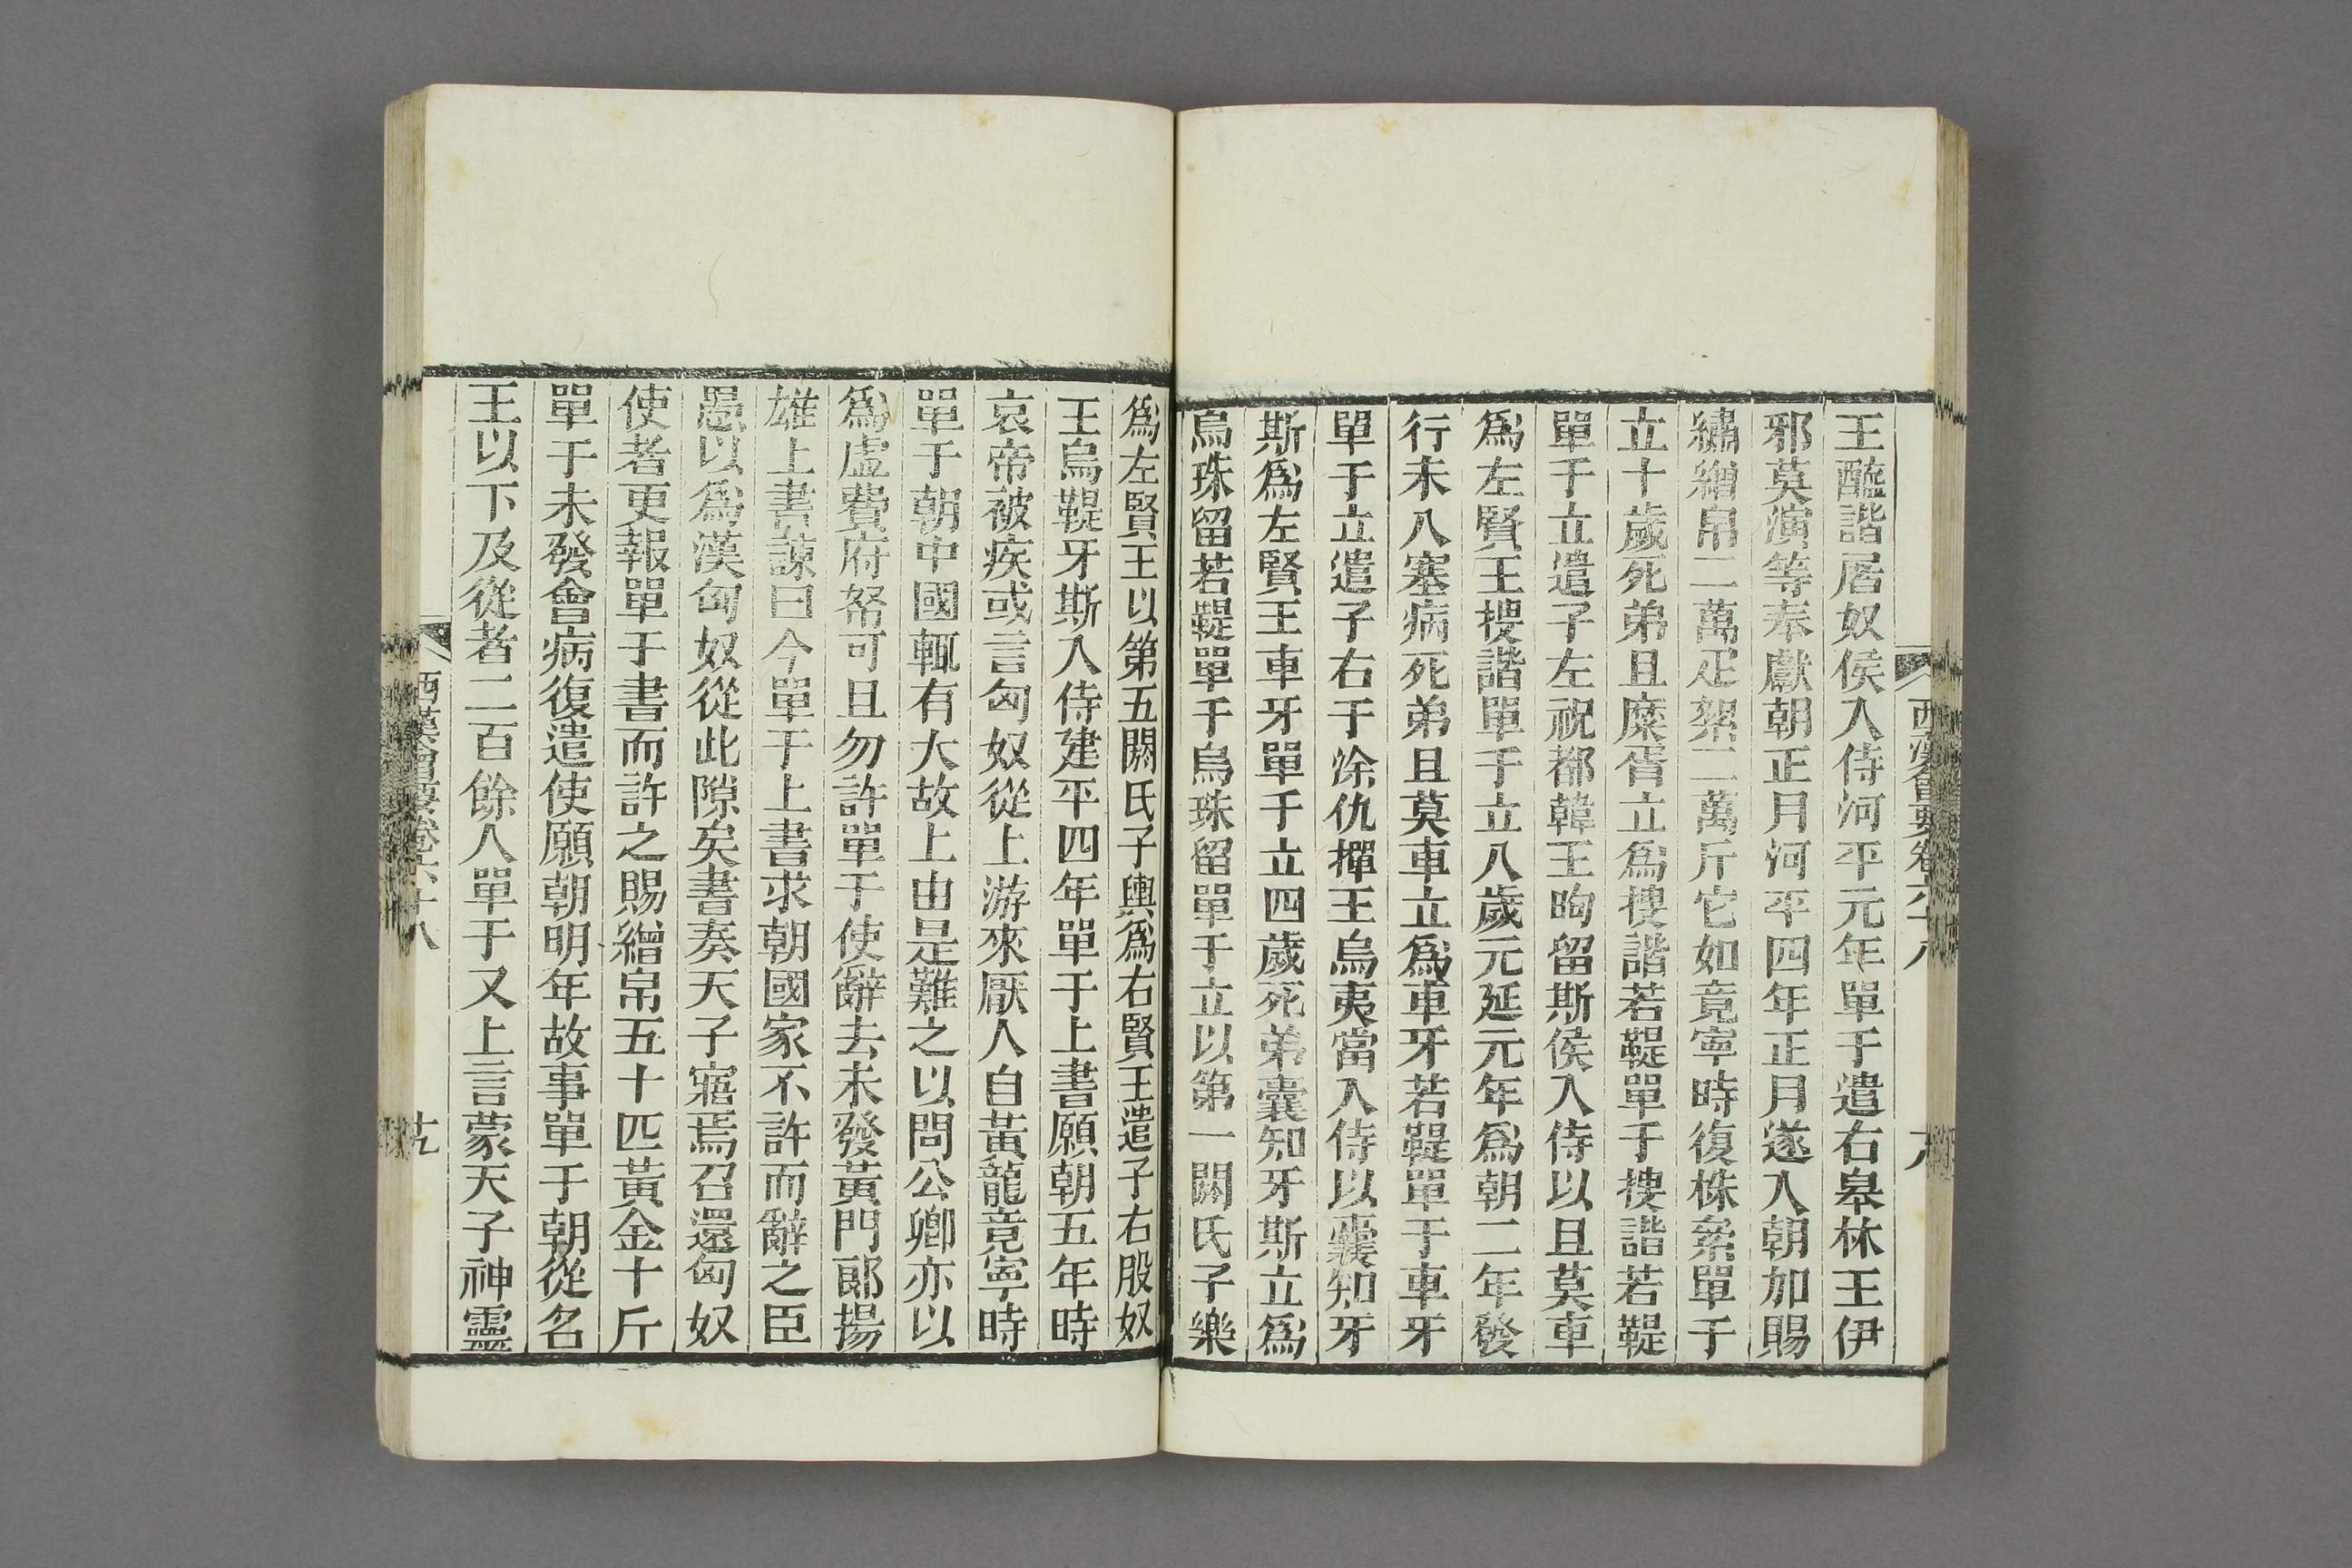 西漢會要卷六十八
王醯諧屠奴侯入侍河平元年單于遣右皋林王伊
邪莫演等奉獻朝正月河平四年正月遂入朝加賜
繡繒帛二萬疋絮二萬斤它如竟寧時復株絫單于
立十歲死弟且糜胥立爲搜諧若鞮單于搜諧若鞮
單于立遣子左祝都韓王昫留斯侯入侍以且莫車
爲左賢王搜諧單于立八歲元延元年爲朝二年發
行未入塞病死弟且莫車立爲車牙若鞮單于車牙
單于立遣子右于涂仇撣王烏夷當入侍以囊知牙
斯爲左賢王車牙單于立四歲死弟囊知牙斯立爲
烏珠留若鞮單于烏珠留單于立以第一閼氏子樂
爲左賢王以第五閼氏子輿爲右賢王遣子右股奴
王烏鞮牙斯入侍建平四年單于上書願朝五年時
哀帝被疾或言匈奴從上游來厭人自黃龍竟寧時
單于朝中國輒有大故上由是難之以問公卿亦以
爲虛費府帑可且勿許單于使辭去未發黃門郞揚
雄上書諫曰今單于上書求朝國家不許而辭之臣
愚以爲漢匈奴從此隙矣書奏天子寤焉召還匈奴
使者更報單于書而許之賜繒帛五十匹黃金十斤
單于未發會病復遣使願朝明年故事單于朝從名
王以下及從者二百餘人單于又上言蒙天子神靈
西漢會要卷六十八